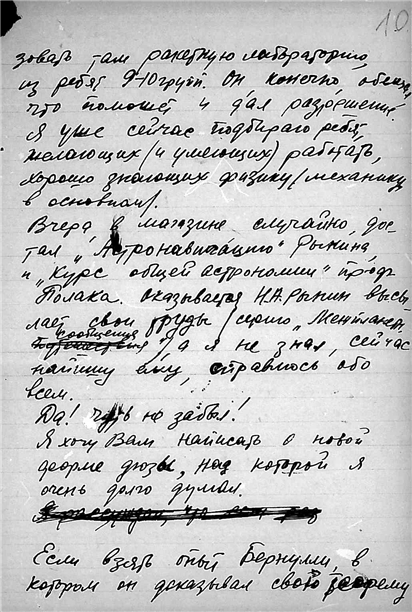 10.
зовать там ракетную лабораторию,
из ребят 9-10 групп. Он конечно обещал,
что поможет и дал разрешение.
Я уже сейчас подбираю ребят,
желающих (и умеющих) работать,
хорошо знающих физику (механику
в основном).
Вчера в магазине случайно, дос-
тал „Астронавигацию" Рынина,
и „Курс общей астрономии" проф.
Полака. Оказывается Н.А. Рынин высы-
лает свои труды (серию „Межпланет.
сообщения"), а я не знал, сейчас
напишу ему, справлюсь обо
всем.
Да! Чуть не забыл!
Я хочу Вам написать о новой
форме дюзы, над которой я
очень долго думал.
Если взять опыт Бернулли, в
котором он доказывал свою теорему